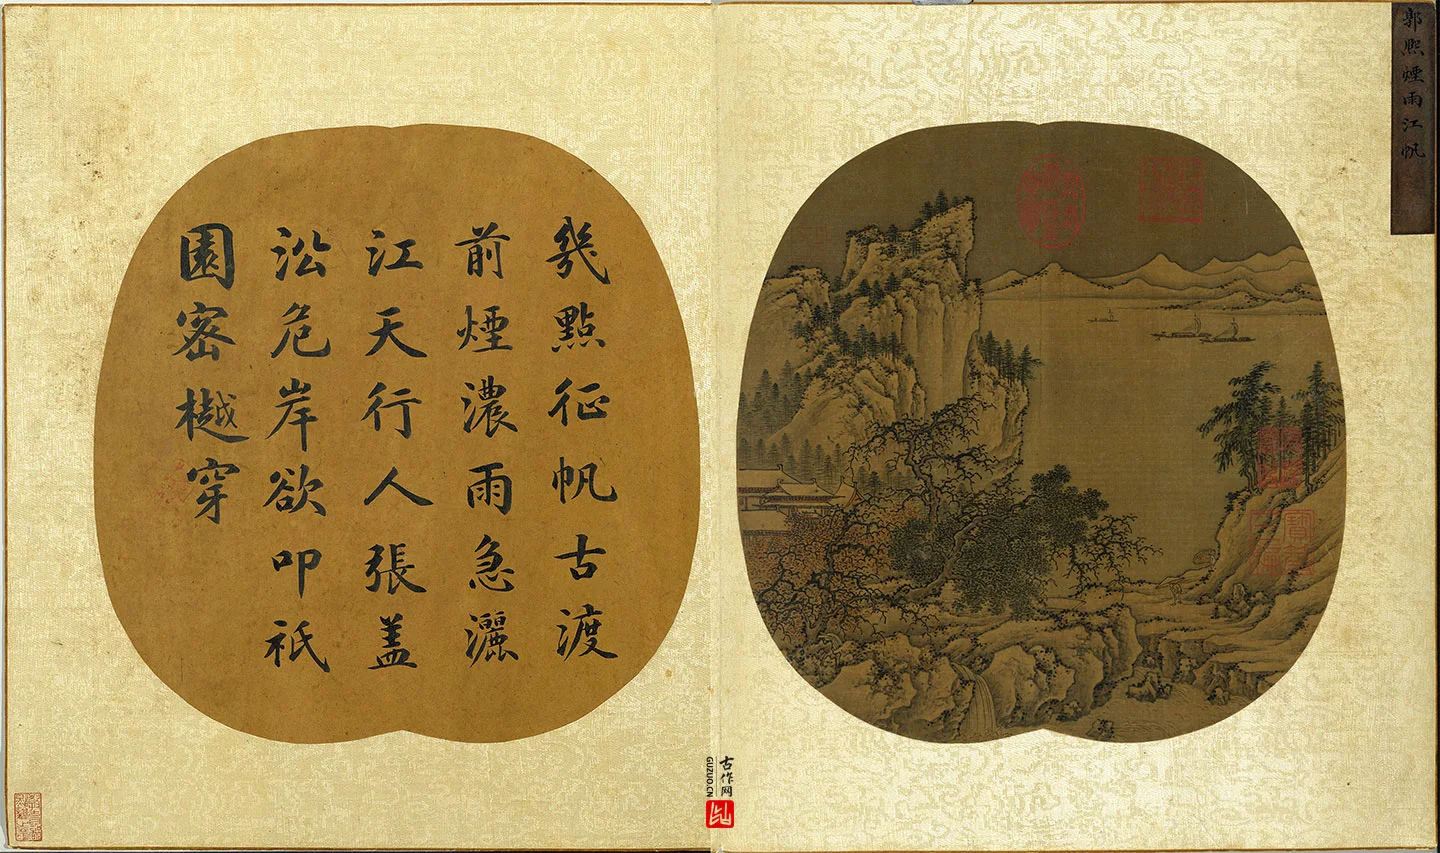 郭熙煙雨江帆
幾點征帆古渡
前煙濃雨急灑
江天行人張盖
㳂危岸欲叩祇
園密樾穿
古作网
GUZUO.CN